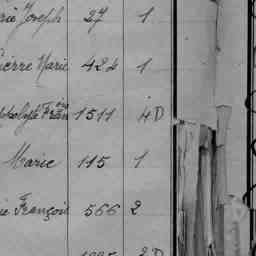 rie Joseph 27 1
Pierre Marie 424 1
Hippolyte Fran 1511 4D
Marie 115 1
ie François 566 2
2D